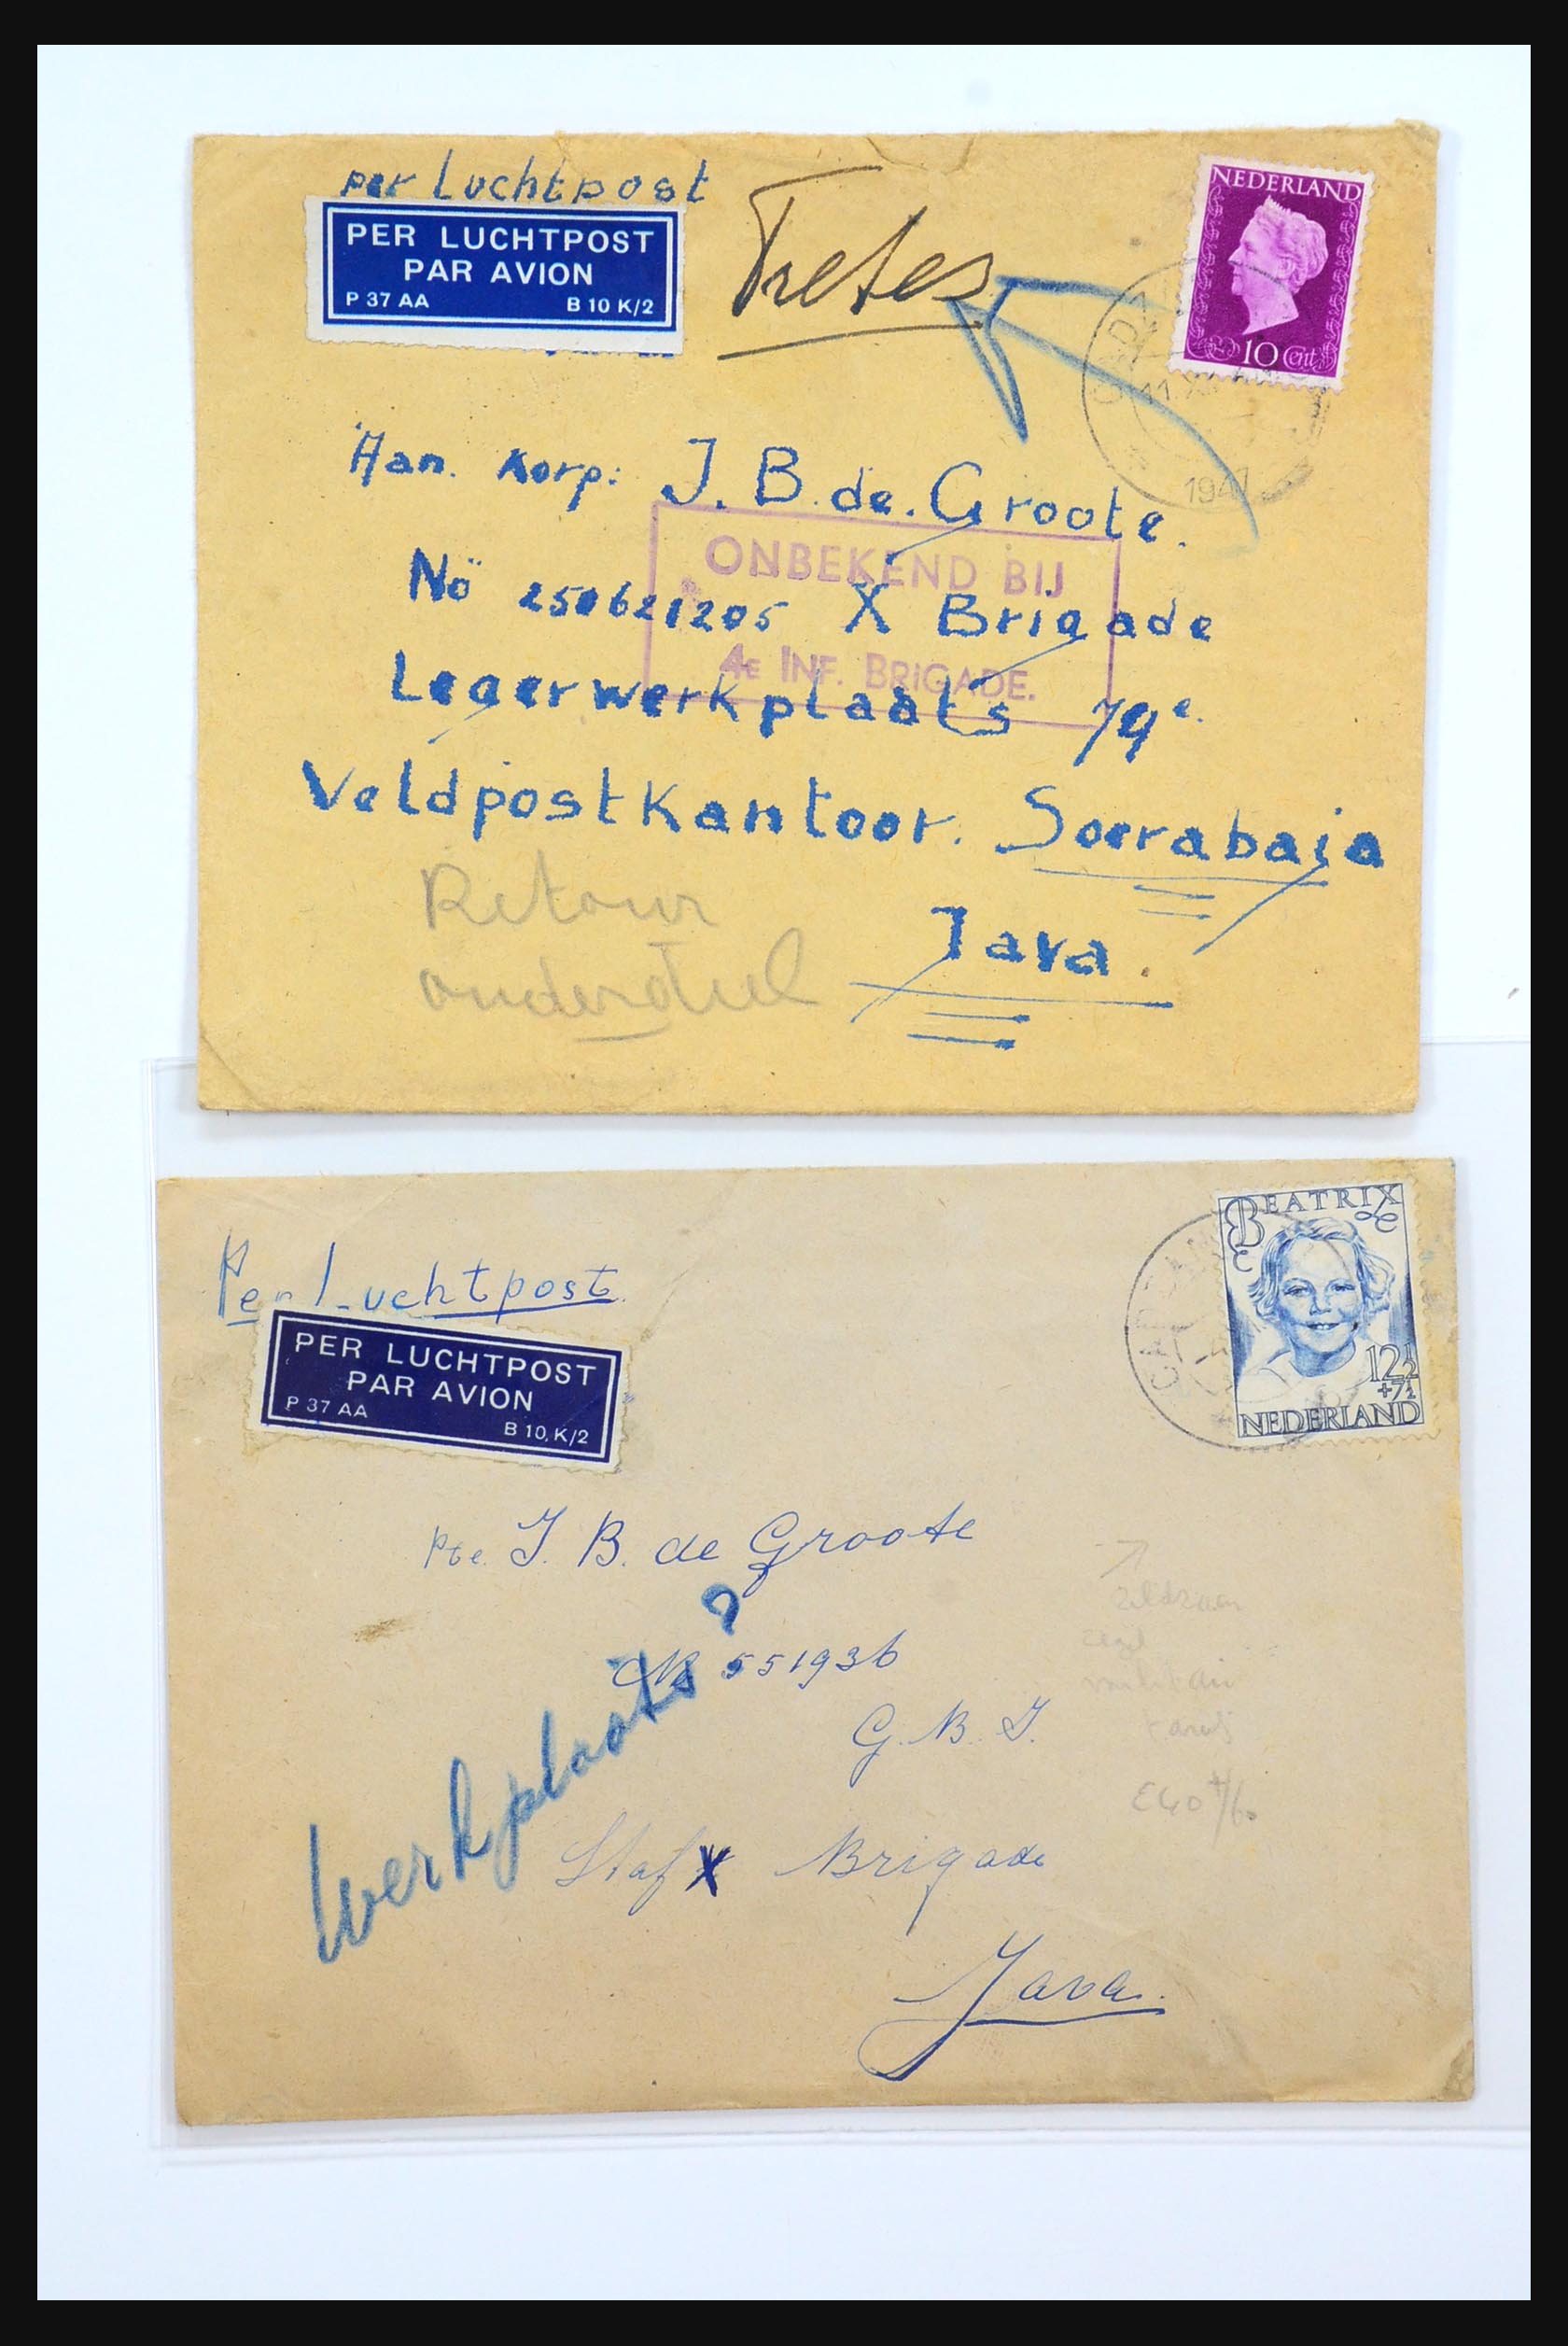 per Luchtpost
PER LUCHTPOST
PAR AVION
P 37 AA B 10 K/2
Tretes
NEDERLAND
10 Cent
1947
Aan. Korp: J. B. de. Groote.
ONBEKEND BIJ
4E INF. BRIGADE.
Nö 250621205 X Brigade
Legerwerkplaats 79e.
Veldpostkantoor. Soerabaia
Java.
Retour
onderdeel
Per Luchtpost
PER LUCHTPOST
PAR AVION
P 37 AA B 10, K/2
BEATRIX
12½
+7½
NEDERLAND
Pte. J. B. de Groote
No 551936
G. N. I.
Werkplaats?
Staf X Brigade
Java.
zeldzaam